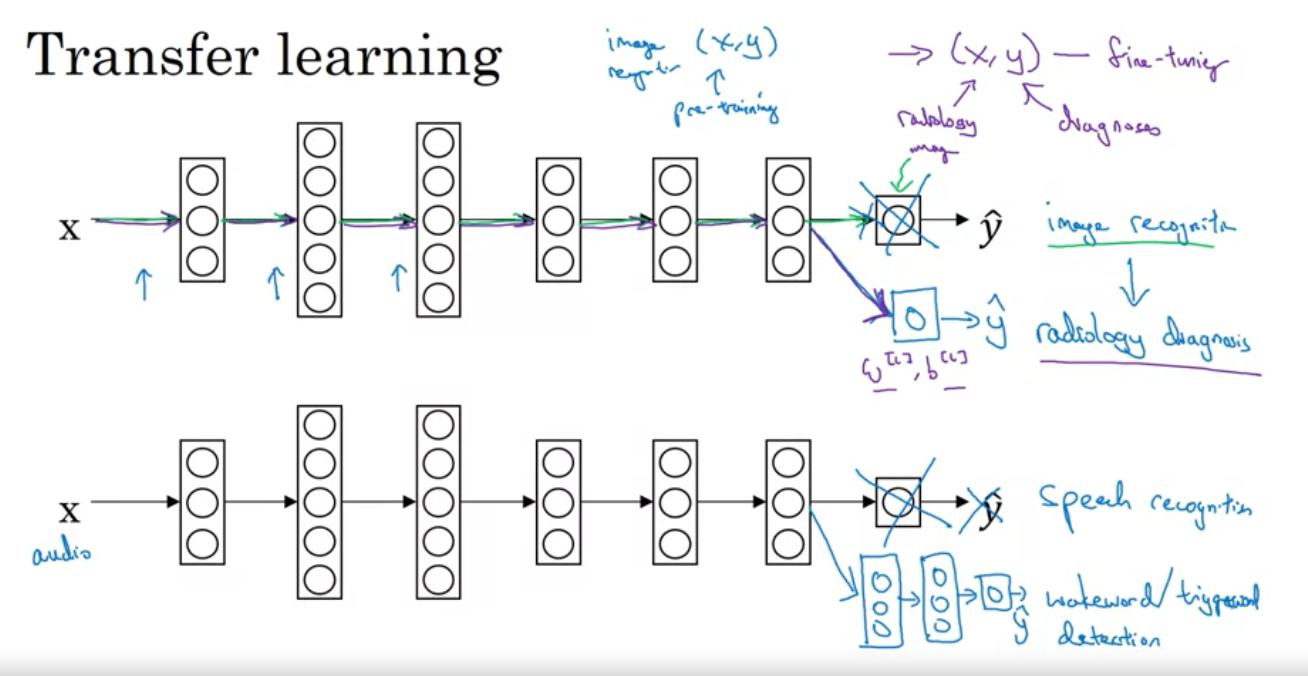 Transfer learning
image (x,y)
pre-training
→ (x,y) — fine-tuning
radiology
diagnoses
x
ŷ
image recognition
ŷ
radiology diagnosis
w^[L], b^[L]
x
audio
ŷ
speech recognition
ŷ
wakeword/triggerword
detection